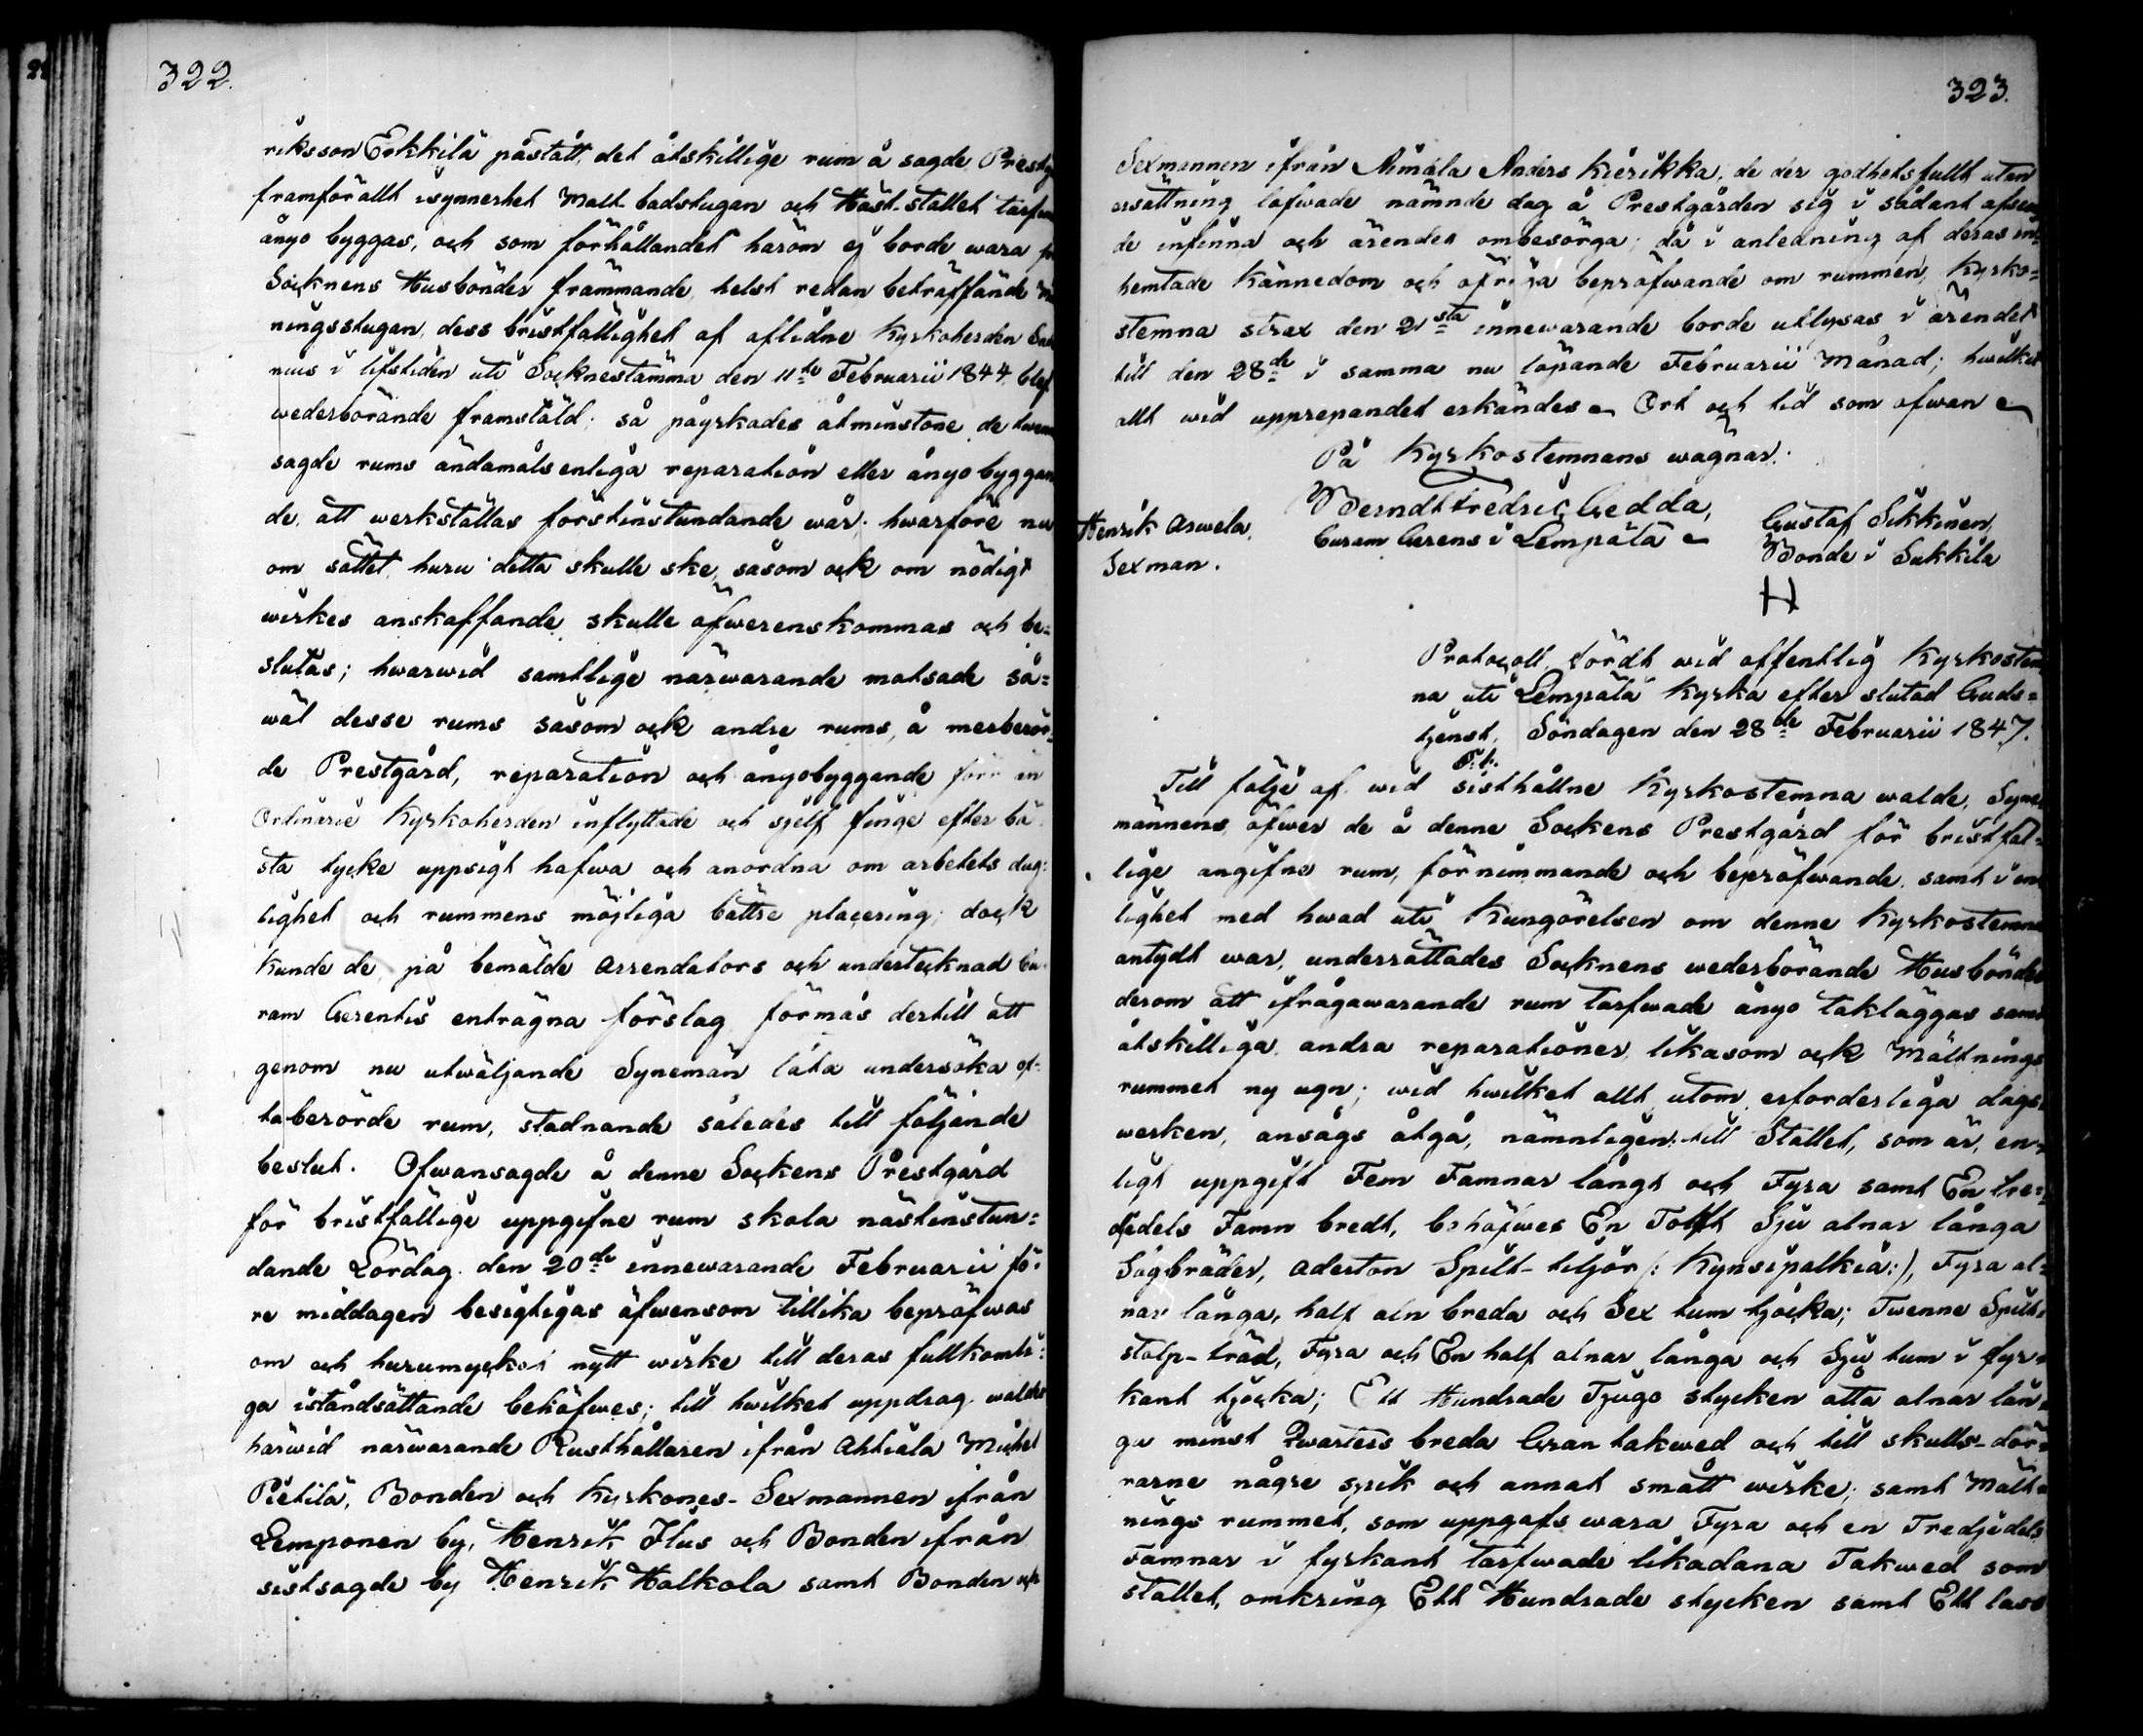 322.
riksson Erkkilä påstått, det åtskillige rum å sagde Prestg
framförallt isynnerhet Malt badstugan och Häst-stallet tarfwa
ånyo byggas, och som förhållandet härom ej borde wara
Socknens Husbönder främmande, helst redan beträffande
ningsstugan, dess bristfällighet af aflidne Kyrkoherden
nius i lifstiden uti Socknestämma den 11te Februarii 1844 blef
wederbörande framstäld; så påyrkades åtminstone de twenne
sagde rums ändamålsenliga reparation eller ånyo byggan
de, att werkställas förstinstundande wår; hwarföre nu
om sättet, huru detta skulle ske, såsom ock om nödigt
wirkes anskaffande skulle öfwerenskommas och be=
slutas; hwarwid samtlige närwarande motsade så=
wäl desse rums såsom ock andre rums, å merberör=
de Prestgård, reparation och ånyobyggande förr än
Ordinarie Kyrkoherden inflyttade och sjelf finge efter bä=
sta tycke uppsigt hafwa och anordna om arbetets dug=
lighet och rummens möjliga bättre placering; dock
kunde de, på bemälde Arrendators och undertecknad Cu=
ram Gerentis enträgna förslag förmås dertill att
genom nu utwäljande Synemän låta undersöka of=
taberörde rum, stadnande således till följande
beslut. Ofwansagde å denne Sockens Prestgård
för bristfällige uppgifne rum skola nästinstun=
dande Lördag den 20de innewarande Februarii fö=
re middagen besigtigas äfwensom tillika bepröfwas
om och hurumycket nytt wirke till deras fullkomli=
ga iståndsättande behöfwes; till hwilket uppdrag waldes
härwid närwarande Rusthållaren ifrån Ahtiala Michel
Pietilä, Bonden och Kyrkones-Sexmannen ifrån
Lemponen by, Henrik Ilus och Bonden ifrån
sistsagde by Henrik Halkola samt Bonden och
323.
Sexmannen ifrån Aimala Anders Kierikka, de der godhetsfullt utan
ersättning lofwade nämnde dag å Prestgården sig i sådant afseen
de infinna och ärendet ombesörga; då i anledning af deras in=
hemtade kännedom och öfriga bepröfwande om rummen, Kyrko=
stemna strax den 21sta innewarande borde utlysas i ärendet
till den 28de i samma nu löpande Februarii Månad; hwilket
allt wid upprepandet erkändes. Ort och tid som ofwan
På Kyrkostemnans wägnar:
Berndt Fredric Gedda,
Curam Gerens i Lempäla
Henrik Arwela,
Sexman.
Gustaf Sikkinen,
Bonde i Sukkila
H
Protocoll, fördt wid offentlig Kyrkostem
na uti Lempälä Kyrka efter slutad Guds=
tjenst, Söndagen den 28de Februarii 1847.
S.d.
Till följe af wid sisthållne Kyrkostemna walde Syne
männens öfwer de å denne Sockens Prestgård för bristfäl=
lige angifne rum, förnimmande och bepröfwande, samt i en
lighet med hwad uti Kungörelsen om denne Kyrkostemna
antydt war, underrättades Socknens wederbörande Husbönder
derom att ifrågawarande rum tarfwade ånyo takläggas samt
åtskilliga andra reparationer likasom ock Mältnings
rummet ny ugn; wid hwilket allt, utom erforderliga dags
werken, ansågs åtgå, nämnligen: till Stallet, som är, en=
ligt uppgift Fem Famnar långt och Fyra samt En tre=
djedels Famn bredt, behöfwes En Tolft Sju alnar långa
Sågbräder, aderton Spilt-tiljor /: Kynsipalkia:/, Fyra al=
nar långa, half aln breda och Sex tum tjocka; Twenne Spilt=
stolp-träd, Fyra och En half alnar långa och Sju tum i fyr=
kant tjocka; Ett Hundrade Tjugo stycken åtta alnar lån
ga minst Qwarters breda Gran takwed och till skulls-dör=
rarne någre spik och annat smått wirke; samt Mält=
nings rummet, som uppgafs wara Fyra och en Tredjedels
Famnar i fyrkant tarfwade likadana Takwed som
stallet, omkring Ett Hundrade stycken samt Ett lass